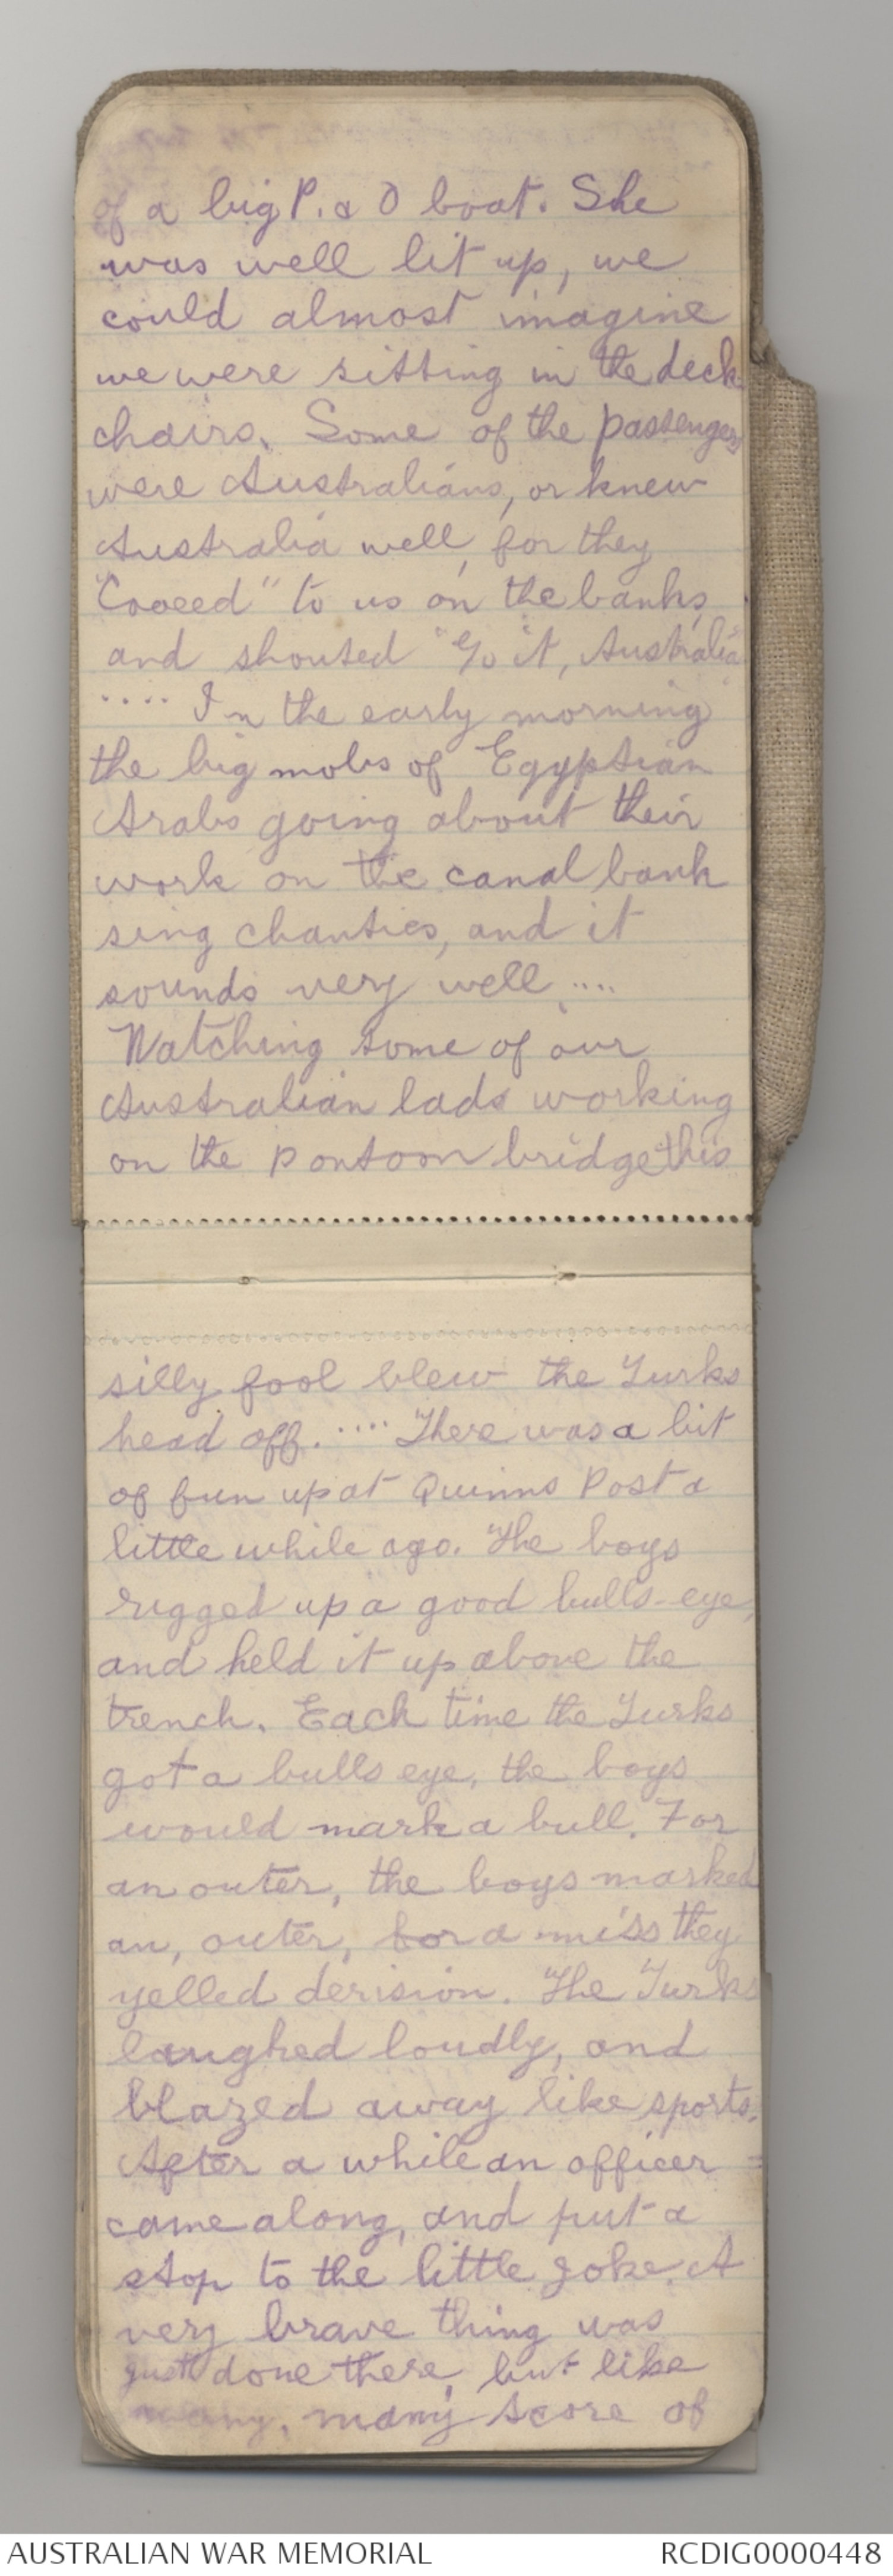 of a big P. & O boat. She
was well lit up, we
could almost imagine
we were sitting in the deck
chairs. Some of the passengers
were Australians, or knew
Australia well, for they
"Cooeed" to us on the banks,
and shouted "Go it, Australia"
.... In the early morning
the big mobs of Egyptian
Arabs going about their
work on the canal bank
sing chanties, and it
sounds very well ....
Watching some of our
Australian lads working
on the pontoon bridge this
silly fool blew the Turks
head off. .... There was a bit
of fun up at Quinns Post a
little while ago. The boys
rigged up a good bulls-eye,
and held it up above the
trench. Each time the Turks
got a bulls eye, the boys
would mark a bull. For
an outer, the boys marked
an, outer, for a miss they
yelled derision. The Turks
laughed loudly, and
blazed away like sports.
After a while an officer
came along, and put a
stop to the little joke. A
very brave thing was
just done there, but like
many, many score of
AUSTRALIAN WAR MEMORIAL
RCDIG0000448